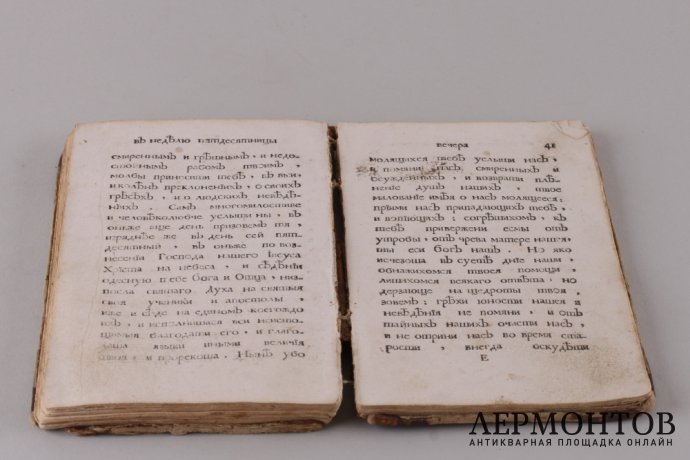 въ недѣлю пятдесятницы
смиреннымъ и грѣшнымъ, и недо-
стойнымъ рабомъ твоимъ,
молбы приносити тебѣ, въ выи
и колѣнѣ преклоненїихъ, о своихъ
грѣсѣхъ, и о людскихъ невѣдѣ-
нїихъ. Самъ многомилостиве
и человѣколюбче услыши ны, въ
оньже аще день призовемъ тя,
изряднѣе же въ день сей пят-
десятный, въ оньже по воз-
несенїи Господа нашего Іисуса
Христа на небеса, и сѣдѣнїи
одесную тебе бога и Отца, низ-
посла святаго Духа на святыя
своя ученики и апостолы,
иже и сѣде на единомъ коегождо
ихъ, и исполнишася вси неисто-
щимыя благодати его, и глаго-
лаша языки иными величїя
твоя, и пророкоша. Нынѣ убо
вечера 41
молящихся тебѣ услыши насъ,
и помяни насъ, смиренныхъ и
осужденныхъ, и возврати плѣ-
ненїе душъ нашихъ, твое
милованїе имѣя о насъ молящееся;
прїими насъ припадающихъ тебѣ,
и вопїющихъ: согрѣшихомъ, къ
тебѣ привержени есмы отъ
утробы, отъ чрева матере нашея
ты еси богъ нашъ. Но яко
исчезоша въ суетѣ днїе наши,
обнажихомся твоея помощи,
лишихомся всякаго отвѣта, но
дерзающе на щедроты твоя
зовемъ: грѣхи юности нашея и
невѣдѣнїя не помяни, и отъ
тайныхъ нашихъ очисти насъ,
и не отрини насъ во время ста-
рости, внегда оскудѣти
Е
ЛЕРМОНТОВ
АНТИКВАРНАЯ ПЛОЩАДКА ОНЛАЙН